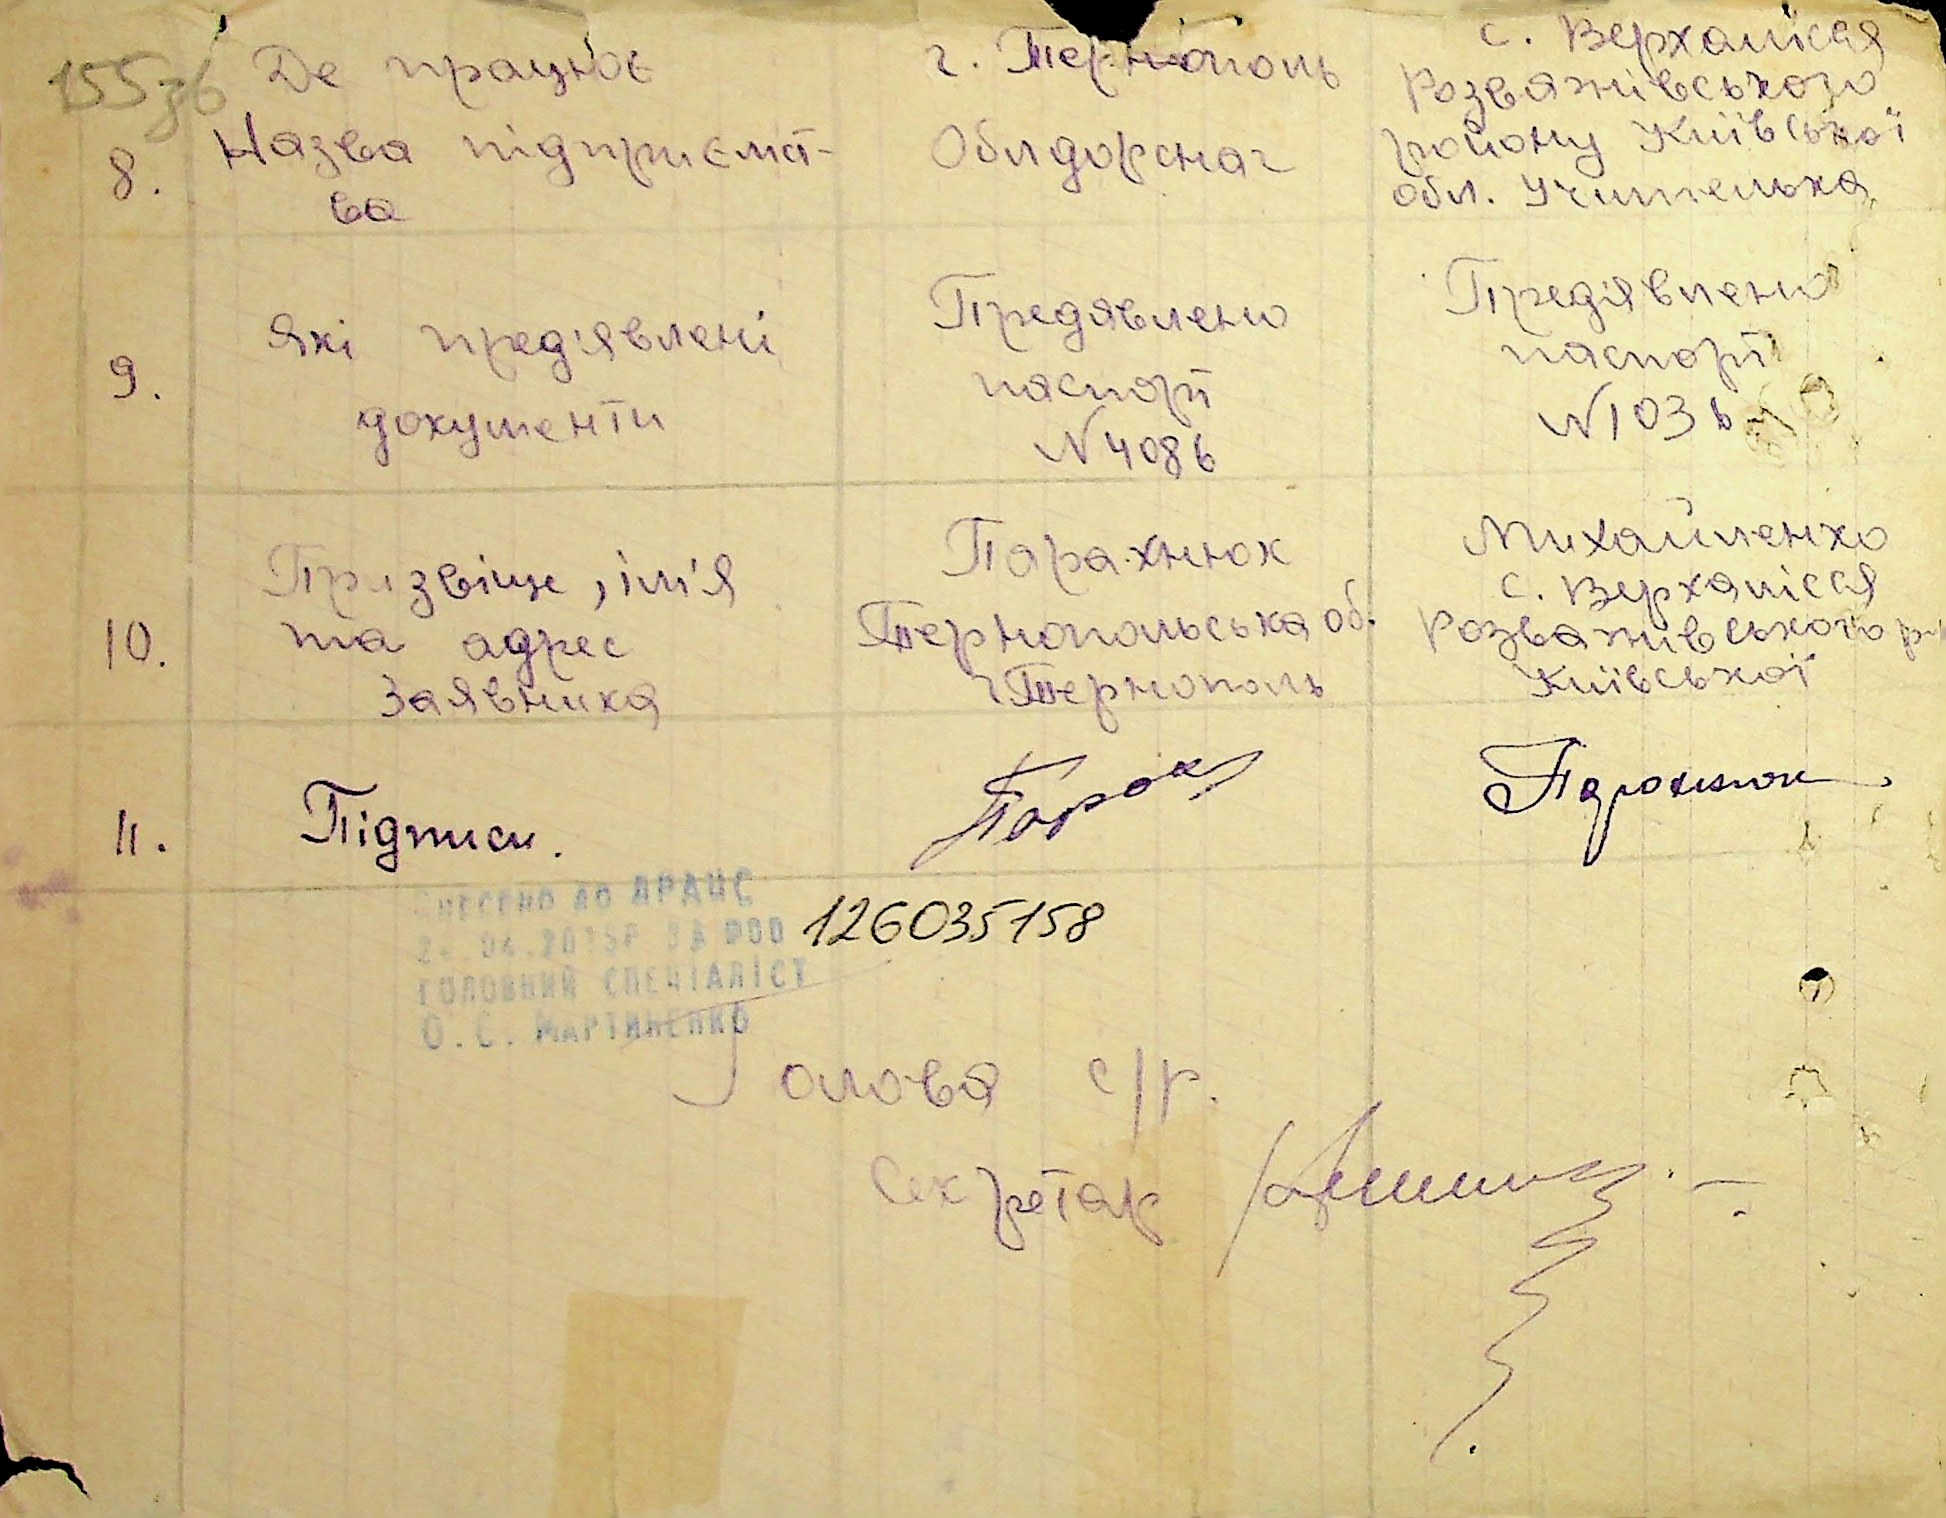 155зв
8.
Де працює
Назва підприємст-
ва
г. Тернополь
Облдорснаг
с. Верхалісся
Розважівського
району Київської
обл. Учителька
9.
Які пред'явлені
документи
Предявлено
паспорт
N 4086
Пред'явлено
паспорт
N 1036
10.
Призвіще, ім'я
та адрес
Заявника
Парахнюк
Тернопольська об.
г Тернополь
Михайленко
с. Верхалісся
Розваживського р-
Київської
11.
Підписи.
Парах
Парахнюк
ВНЕСЕНО ДО ДРАЦС
04.2015Р ЗА №00 126035158
ГОЛОВНИЙ СПЕЦІАЛІСТ
О.С. МАРТИНЕНКО
Голова с/р.
Секретар